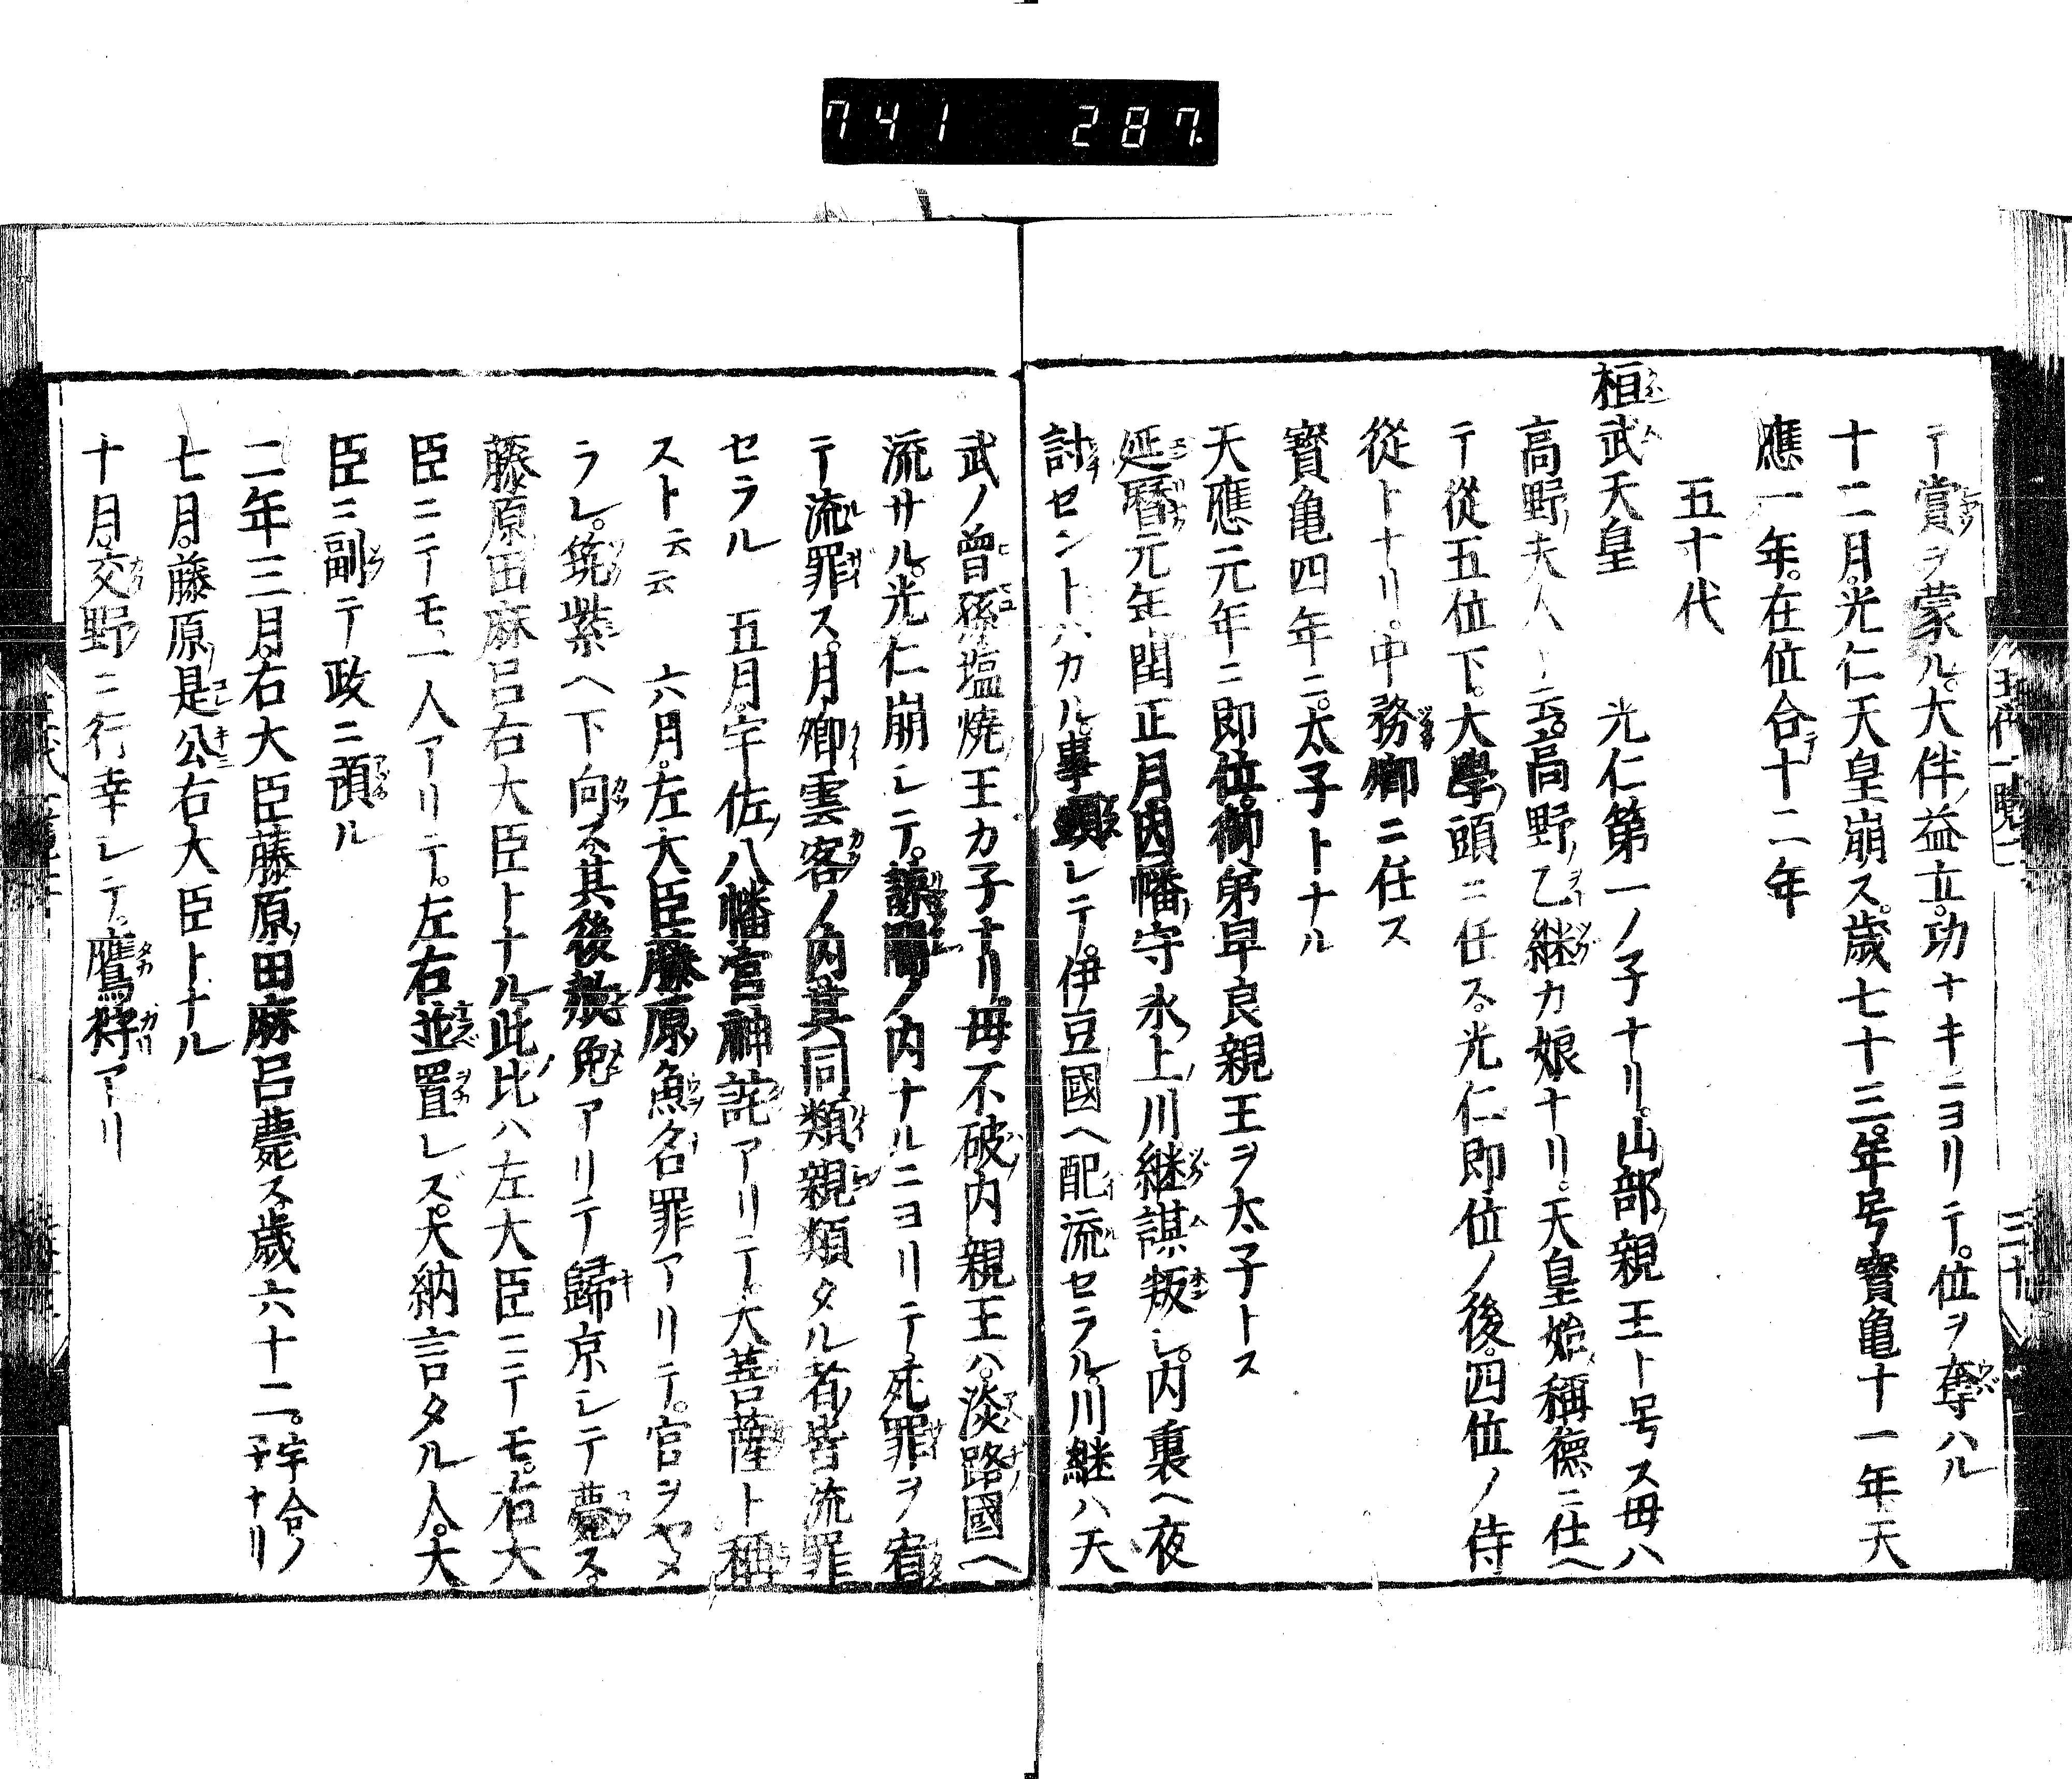 741 287
テ賞ヲ蒙ル。大伴益立。功ナキニヨリテ。位ヲ奪ハル
十二月。光仁天皇崩ス。歳七十三。年号寶亀十一年天
應一年。在位合十二年
五十代
桓武天皇 光仁第一ノ子ナリ。山部親王ト号ス母ハ
高野夫人ト云。高野乙継カ娘ナリ。天皇始稱德ニ仕ヘ
テ從五位下。大學頭ニ任ス。光仁即位ノ後。四位ノ侍
從トナリ。中務卿ニ任ス
寶亀四年ニ。太子トナル
天應元年ニ即位。御弟早良親王ヲ太子トス
延曆元年閏正月因幡守氷上川継謀叛シ。内裏ヘ夜
討セントハカル事顯レテ。伊豆國ヘ配流セラル。川継ハ天
武ノ曾孫塩焼王カ子ナリ母不破内親王ハ。淡路國ヘ
流サル。光仁崩シテ。諒闇ノ内ナルニヨリテ。死罪ヲ宥
テ流罪ス。月卿雲客ノ内其同類親類タル者皆流罪
セラル 五月。宇佐八幡宮神託アリテ。大菩薩ト稱
スト云云 六月。左大臣藤原魚名罪アリテ。官ヲヤメ
ラレ。筑紫ヘ下向ス。其後赦免アリテ歸京シテ薨ス。
藤原田麻呂右大臣トナル此比ハ左大臣ニテモ。右大
臣ニテモ一人アリテ。左右並置レズ。大納言タル人。大
臣ニ副テ政ニ預ル
二年三月。右大臣藤原田麻呂薨ス。歳六十二。宇合ノ子ナリ
七月。藤原是公右大臣トナル
十月。交野ニ行幸シテ。鷹狩アリ
王代一覧二
三十